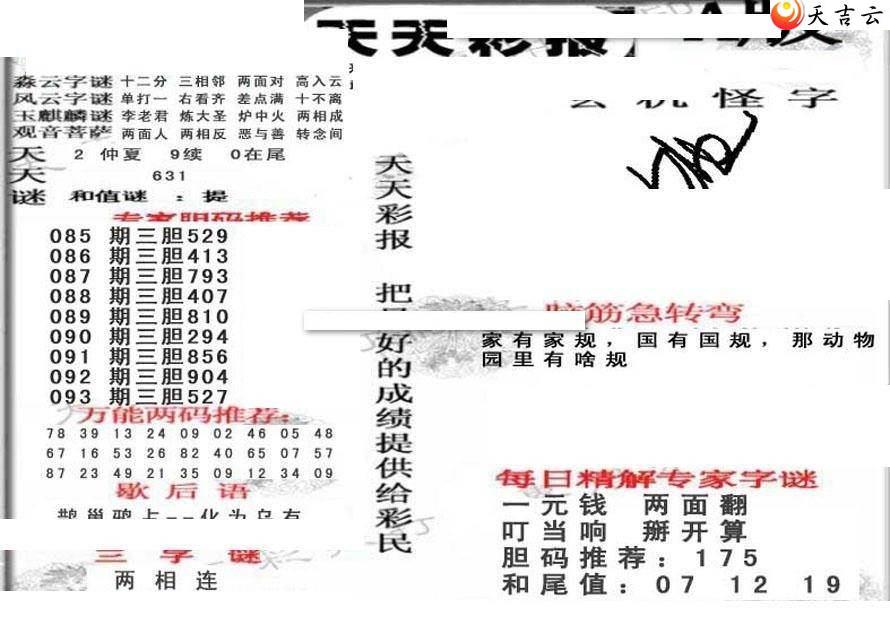 天吉云
天天彩报
森云字谜 十二分 三相邻 两面对 高入云
风云字谜 单打一 右看齐 差点满 十不离
玉麒麟谜 李老君 炼大圣 炉中火 两相成
观音菩萨 两面人 两相反 恶与善 转念间
天 2 仲夏 9续 0在尾
天 631
谜 和值谜 : 提
专家胆码推荐
085 期三胆529
086 期三胆413
087 期三胆793
088 期三胆407
089 期三胆810
090 期三胆294
091 期三胆856
092 期三胆904
093 期三胆527
万能两码推荐:
78 39 13 24 09 02 46 05 48
67 16 53 26 82 40 65 07 57
87 23 49 21 35 09 12 34 09
歇后语
鹊巢鸠占--化为乌有
三字谜
两相连
天天彩报 把最好的成绩提供给彩民
玄机怪字
脑筋急转弯
家有家规，国有国规，那动物
园里有啥规
每日精解专家字谜
一元钱 两面翻
叮当响 掰开算
胆码推荐: 175
和尾值: 07 12 19